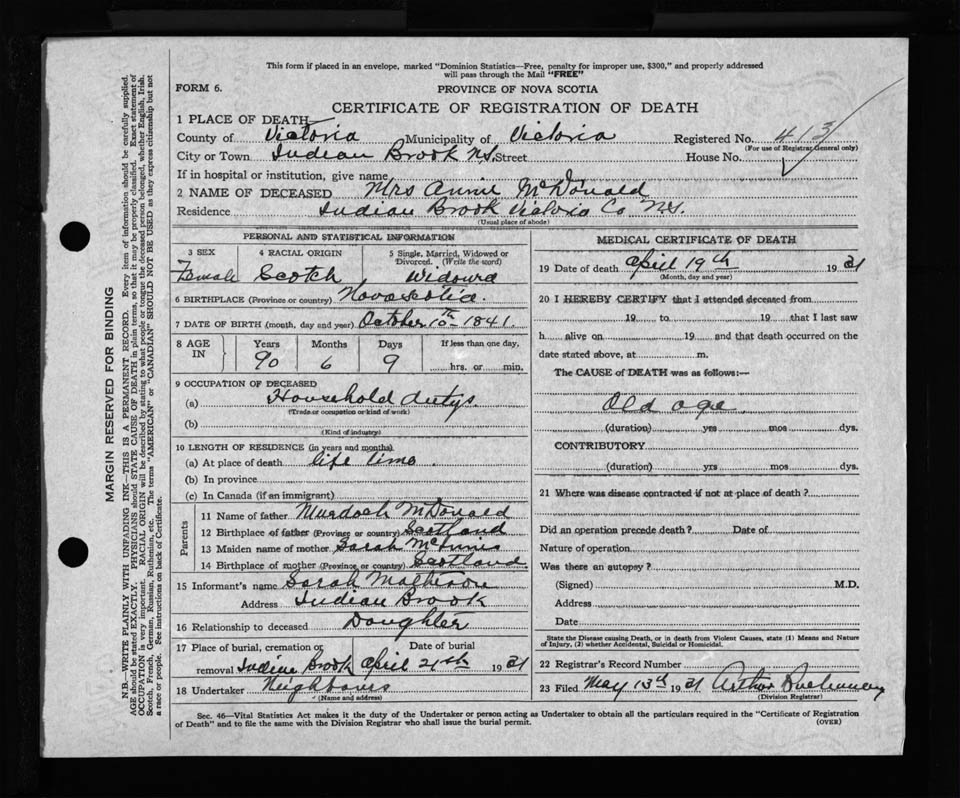 This form if placed in an envelope, marked "Dominion Statistics—Free, penalty for improper use, $300," and properly addressed
will pass through the Mail "FREE"
FORM 6.
PROVINCE OF NOVA SCOTIA
CERTIFICATE OF REGISTRATION OF DEATH
1 PLACE OF DEATH
County of Victoria Municipality of Victoria Registered No. 413
(For use of Registrar General only)
City or Town Indian Brook N.S. Street House No.
If in hospital or institution, give name
2 NAME OF DECEASED Mrs Annie McDonald
Residence Indian Brook Victoria Co N.S.
(Usual place of abode)
PERSONAL AND STATISTICAL INFORMATION
3 SEX 4 RACIAL ORIGIN 5 Single, Married, Widowed or
Divorced. (Write the word)
Female Scotch Widowd
6 BIRTHPLACE (Province or country) Nova Scotia.
7 DATE OF BIRTH (month, day and year) October 10th 1841.
8 AGE IN Years Months Days If less than one day,
90 6 9 hrs. or min.
9 OCCUPATION OF DECEASED
(a) Household dutys
(Trade or occupation or kind of work)
(b)
(Kind of industry)
10 LENGTH OF RESIDENCE (in years and months)
(a) At place of death life time
(b) In province
(c) In Canada (if an immigrant)
Parents
11 Name of father Murdoch McDonald
12 Birthplace of father (Province or country) Scotland
13 Maiden name of mother Sarah McInnis
14 Birthplace of mother (Province or country) Scotland.
15 Informant's name Sarah Matheson
Address Indian Brook
16 Relationship to deceased Doughter
17 Place of burial, cremation or Date of burial
removal Indian Brook April 21st 1931
18 Undertaker Neighbours
(Name and address)
MEDICAL CERTIFICATE OF DEATH
19 Date of death April 19th 1931
(Month, day and year)
20 I HEREBY CERTIFY that I attended deceased from
19 to 19 that I last saw
h alive on 19 and that death occurred on the
date stated above, at m.
The CAUSE of DEATH was as follows:—
Old age
(duration) yrs mos dys.
CONTRIBUTORY
(duration) yrs mos dys.
21 Where was disease contracted if not at place of death?
Did an operation precede death? Date of
Nature of operation
Was there an autopsy?
(Signed) M.D.
Address
Date
State the Disease causing Death, or in death from Violent Causes, state (1) Means and Nature
of Injury, (2) whether Accidental, Suicidal or Homicidal.
22 Registrar's Record Number
23 Filed May 13th 1931 Arthur
(Division Registrar)
Sec. 46—Vital Statistics Act makes it the duty of the Undertaker or person acting as Undertaker to obtain all the particulars required in the "Certificate of Registration
of Death" and to file the same with the Division Registrar who shall issue the burial permit.
(OVER)
MARGIN RESERVED FOR BINDING
N.B.—WRITE PLAINLY WITH UNFADING INK—THIS IS A PERMANENT RECORD. Every item of information should be carefully supplied.
AGE should be stated EXACTLY. PHYSICIANS should STATE CAUSE OF DEATH in plain terms, so that it may be properly classified. Exact statement of
OCCUPATION is very important. RACIAL ORIGIN will be described by stating to what people or tongue the deceased person belonged, whether English, Irish,
Scotch, French, German, Russian, Ruthenian, etc. The terms "AMERICAN" or "CANADIAN" SHOULD NOT BE USED as they express citizenship but not
a race or people. See instructions on back of Certificate.